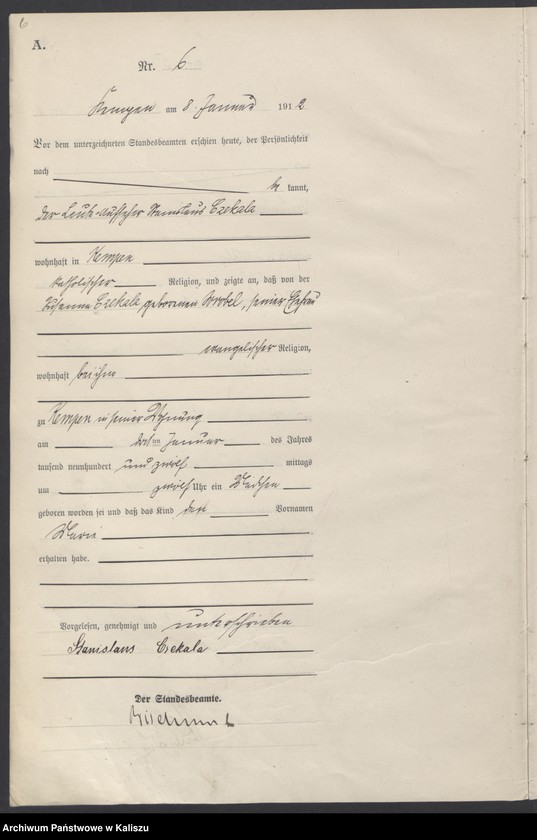 6
A.
Nr. 6
Kempen am 8. Januar 1912
Vor dem unterzeichneten Standesbeamten erschien heute, der Persönlichkeit
nach
be kannt,
der Stanislaus Czekala
wohnhaft in Kempen
katholischer Religion, und zeigte an, daß von der
Czekala, geborenen Wrobel, seiner Ehefrau
evangelischer Religion,
wohnhaft bei ihm
zu Kempen in seiner Wohnung
am Januar des Jahres
tausend neunhundert und zwölf mittags
um zwölf Uhr ein Mädchen
geboren worden sei und daß das Kind den Vornamen
Marie
erhalten habe.
Vorgelesen, genehmigt und unterschrieben
Stanislaus Czekala
Der Standesbeamte.
Archiwum Państwowe w Kaliszu